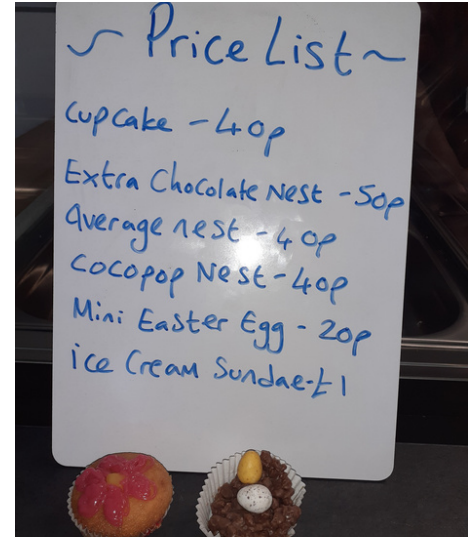 ~ Price List ~
Cupcake - 40p
Extra Chocolate Nest - 50p
Average nest - 40p
Cocopop Nest - 40p
Mini Easter Egg - 20p
ice Cream Sundae - £1